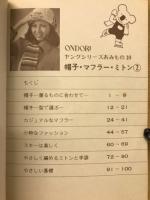 ONDORI
ヤングシリーズあみもの
帽子・マフラー・ミトン②
もくじ
帽子-着るものに合わせて-
帽子-型で選ぶ- 12-21
カジュアルなマフラー 24-41
小粋なファッション 44-67
スキーは楽しく 68-69
やさしく編めるミトンと手袋 72-80
やさしい基礎 91-100